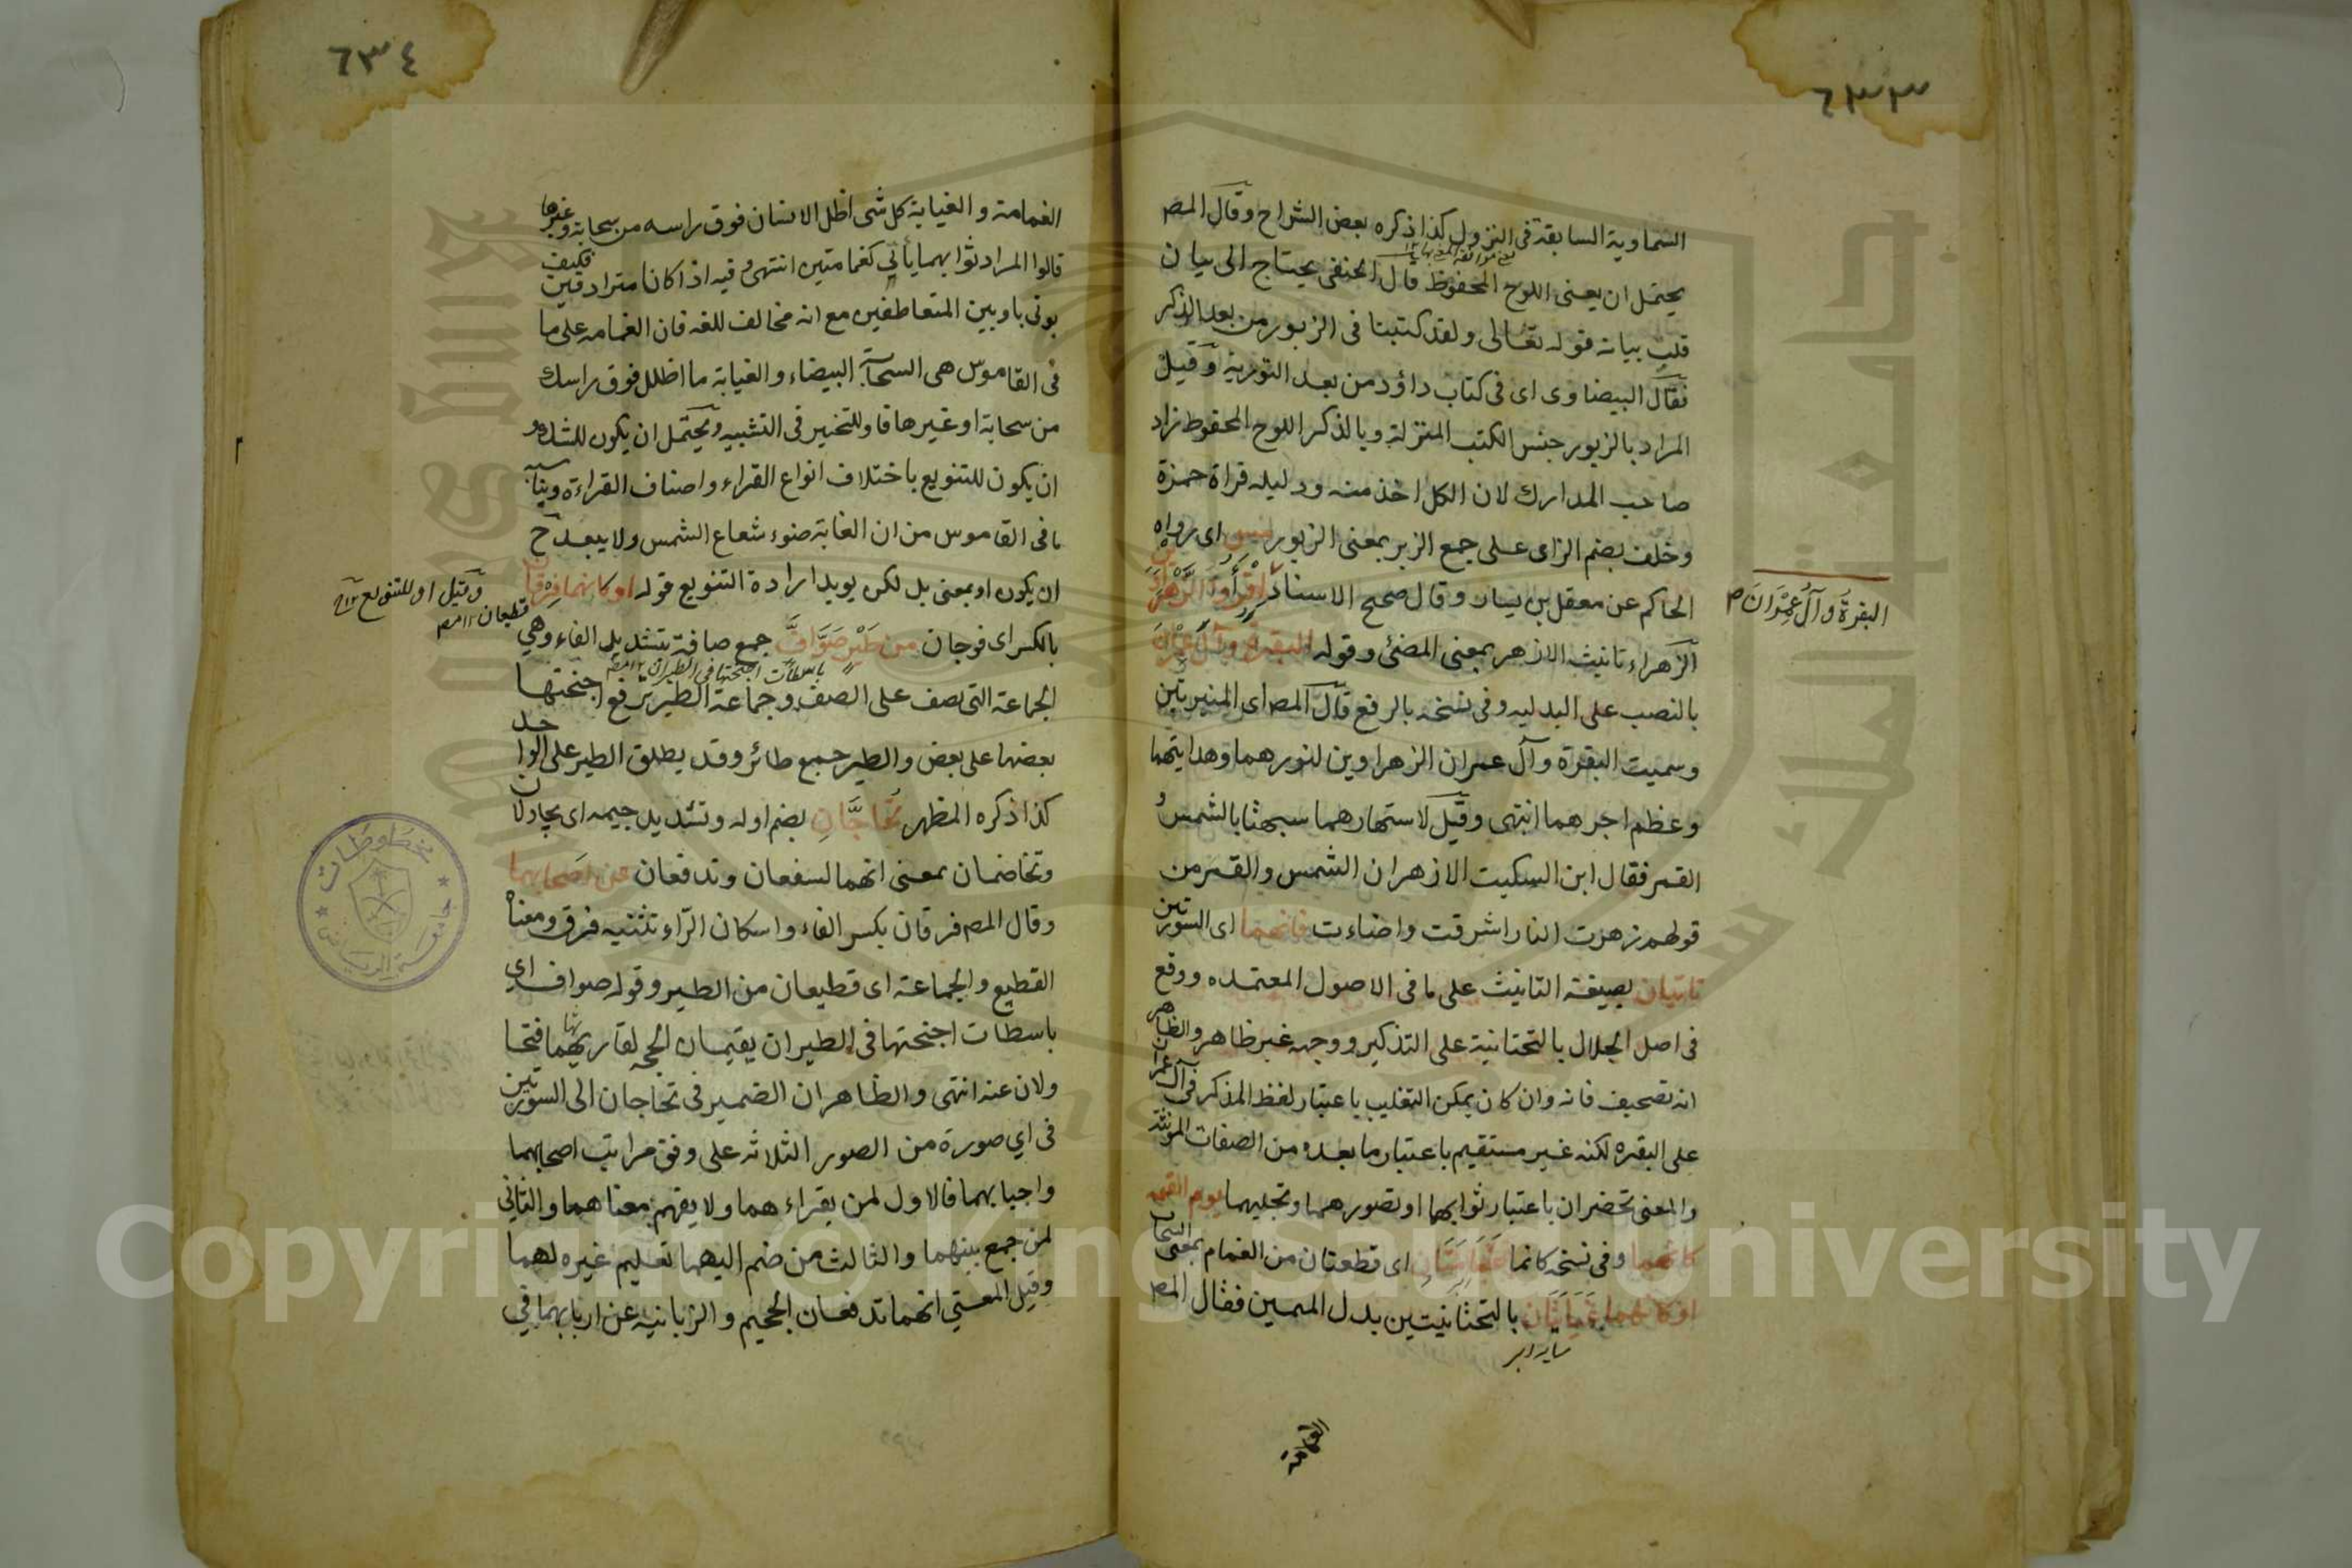 ٦٣٣
السماوية السابقة في النزول كذا ذكره بعض الشراح وقال المص
يحتمل ان يعنى اللوح المحفوظ قال الحنفى يحتاج الى بيان
قلت بيانه قوله تعالى ولقد كتبنا فى الزبور من بعد الذكر
فقال البيضاوى اى فى كتاب داؤد من بعد التورية وقيل
المراد بالزبور جنس الكتب المنزلة وبالذكر اللوح المحفوظ زاد
صاحب المدارك لان الكل اخذ منه ودليله قراة حمزة
وخلف بضم الزاى على جمع الزبر بمعنى الزبور اى رواه
الحاكم عن معقل بن يسار وقال صحيح الاسناد اقرأوا الزهراوين
البقرة وآل عمران م
الزهراء تانيث الازهر بمعنى المضئ وقوله البقرة وآل عمران
بالنصب على البدليه وفى نسخه بالرفع قال المص اى المنيرتين
وسميت البقرة وآل عمران الزهراوين لنورهما وهدايتهما
وعظم اجرهما انتهى وقيل لاستهارهما سبهتا بالشمس و
القمر فقال ابن السكيت الازهران الشمس والقمر من
قولهم زهرت النار اشرقت واضاءت فانهما اى السورتين
تاتيان بصيغة التانيث على ما فى الاصول المعتمده ووقع
فى اصل الجلال بالتحتانية على التذكير ووجهه غير ظاهر والظاهر
انه تصحيف فانه وان كان يمكن التغليب باعتبار لفظ المذكر فى آل عمران
على البقره لكنه غير مستقيم باعتبار ما بعده من الصفات المونثة
والمعنى تحضران باعتبار ثوابهما او تصورهما وتجليهما يوم القيمة
كانهما وفى نسخه كانما غمامتان اى قطعتان من الغمام بمعنى السحاب
او كانهما غيايتان بالتحتانيتين بدل الميمين فقال المص
الغمامة
٦٣٤
الغمامة والغياية كل شى اظل الانسان فوق راسه من سحابة وغيرها
قالوا المراد ثوابهما يأتي كغمامتين انتهى وفيه اذا كانا مترادفين فكيف
يوتى باو بين المتعاطفين مع انه مخالف للغه فان الغمامه على ما
فى القاموس هى السحابة البيضاء والغياية ما اظلل فوق راسك
من سحابة او غيرها فاو للتخيير فى التشبيه ويحتمل ان يكون للشك و
ان يكون للتنويع باختلاف انواع القراء واصناف القراءة
ما فى القاموس من ان الغاية ضوء شعاع الشمس ولا يبعد ح
ان يكون او بمعنى بل لكن يويد ارادة التنويع قوله او كانهما فرقان
وقيل او للتنويع ١٢
قطيعان ١٢ مص
بالكسر اى فوجان من طير صواف جمع صافة بتشديد الفاء وهي
باسطات اجنحتها فى الطيران ١٢ مص
الجماعة التى تصف على الصف وجماعة الطير ترفع اجنحتها
بعضها على بعض والطير جمع طائر وقد يطلق الطير على الواحد
كذا ذكره المظهر تحاجان بضم اوله وتشديد جيمه اى يجادلان
وتخاصمان بمعنى انهما تشفعان وتدفعان عن اصحابهما
وقال المص فرقان بكسر الفاء واسكان الراء تثنيه فرق ومعناه
القطيع والجماعة اى قطيعان من الطير وقوله صواف اي
باسطات اجنحتها فى الطيران يقيمان الحجه لقاريهما
ولان عنه انتهى والظاهر ان الضمير فى تحاجان الى السورتين
فى اي صورة من الصور الثلاثه على وفق مراتب اصحابهما
واحبابهما فالاول لمن يقراءهما ولا يفهم معناهما والثاني
لمن جمع بينهما والثالث من ضم اليهما تعليم غيره لهما
وقيل المعنى انهما تدفعان الجحيم والزبانيه عن اربابهما في
مخطوطات
جامعة الرياض
Copyright © King Saud University